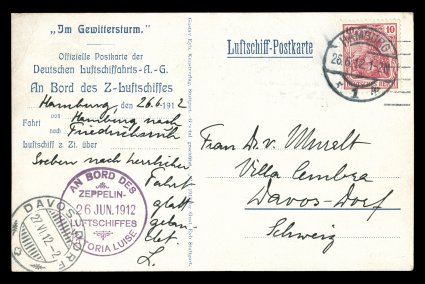 „Im Gewittersturm.“
Offizielle Postkarte der
Deutschen Luftschiffahrts-A.-G.
An Bord des Z-Luftschiffes
Hamburg, den 26.6. 1912
Fahrt von Hamburg nach
nach Friedrichsruh
Luftschiff z. Zt. über
Soeben nach herrlicher
Fahrt
glatt
L.
AN BORD DES
ZEPPELIN-
26 JUN. 1912
LUFTSCHIFFES
VIKTORIA LUISE
DAVOS DORF
27.VI.12.-2
Luftschiff-Postkarte
HAMBURG
26.6.12
1
10
Frau Dr. v. Muralt
Villa Cembra
Davos-Dorf
Schweiz